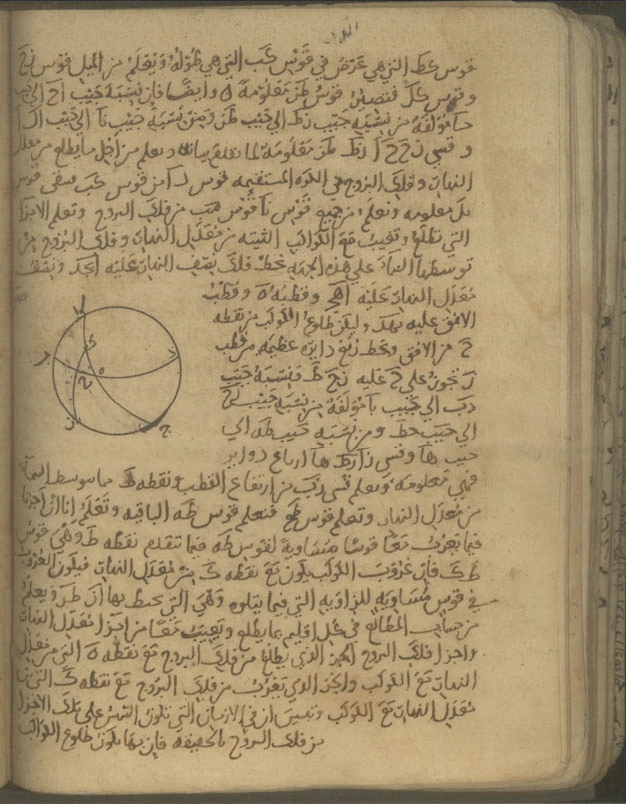 قوس كط التي هي عرض في قوس كب التي هي طوله ونعلم من الميل قوس نح
وقوس كل فتصير قوس طن معلومة وايضا فان نسبة جيب اح الى
حا مؤلفة من نسبة جيب نط الى جيب طن ومن نسبة جيب نا الى جيب
وقسي نط طن معلومة لما تقدم بيانه ونعلم من اجل ما يطلع من معدل
النهار وفلك البروج في الكرة المستقيمه قوس لا من قوس كب فتبقى قوس
بل معلومه ونعلم من جميع قوس نا قوس من فلك البروج ونعلم الاجزا
التي تطلع وتغيب مع الكواكب الثابته من معدل النهار وفلك البروج من
توسطها السما على هذه الجهة نخط فلك نصف النهار عليه ابجد ونصف
معدل النهار عليه اهج وقطبه وقطب
الافق عليه بهد وليكن طلوع الكوكب من نقطه
ح من الافق ونخط ربع دايرة عظيمه من قطب
ز تجوز على ح عليه زح ط فنسبة جيب
الى جيب با مؤلفة من نسبة جيب زح
الى جيب حط ومن نسبة جيب طه الى
جيب ها وقسي زا زط ها ارباع دواير
فهي معلومه ونعلم قسي من ارتفاع القطب ونقطه ط مما توسط السما
من معدل النهار ونعلم قوس طح فنعلم قوس طه الباقيه ونعلم انا ان اجزنا
فيما يغرب معا قوسا متساوية لقوس طه فيما تتقدم نقطه ط وهي قوس
ط ك فان غروب الكوكب يكون مع نقطه ك من معدل النهار فيكون الغروب
في قوس متساويه للزاويه التي فيما يتلوه وهي التي يحيط بها ونعلم
من حساب المطالع في كل اقليم ما يطلع ويغيب معا من اجزا معدل النهار
واجزا فلك البروج الجز الذي يطلع من فلك البروج مع نقطه ه التي من معدل
النهار مع الكوكب والجز الذي يغرب من فلك البروج مع نقطه ك التي من
معدل النهار مع الكوكب وتبين ان في الازمان التي تكون الشمس على تلك الاجزا
من فلك البروج بالحقيقه فان بها يكون طلوع الكواكب